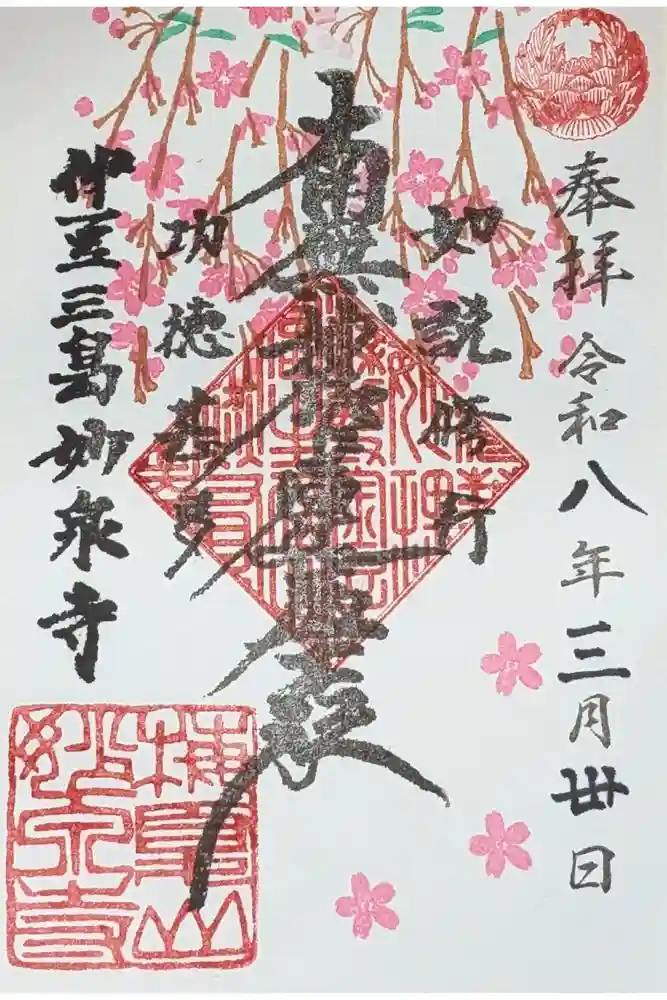 奉拝 令和八年三月丗日
如説脩行
南無妙法蓮華経
功徳甚多
伊豆三島妙泉寺